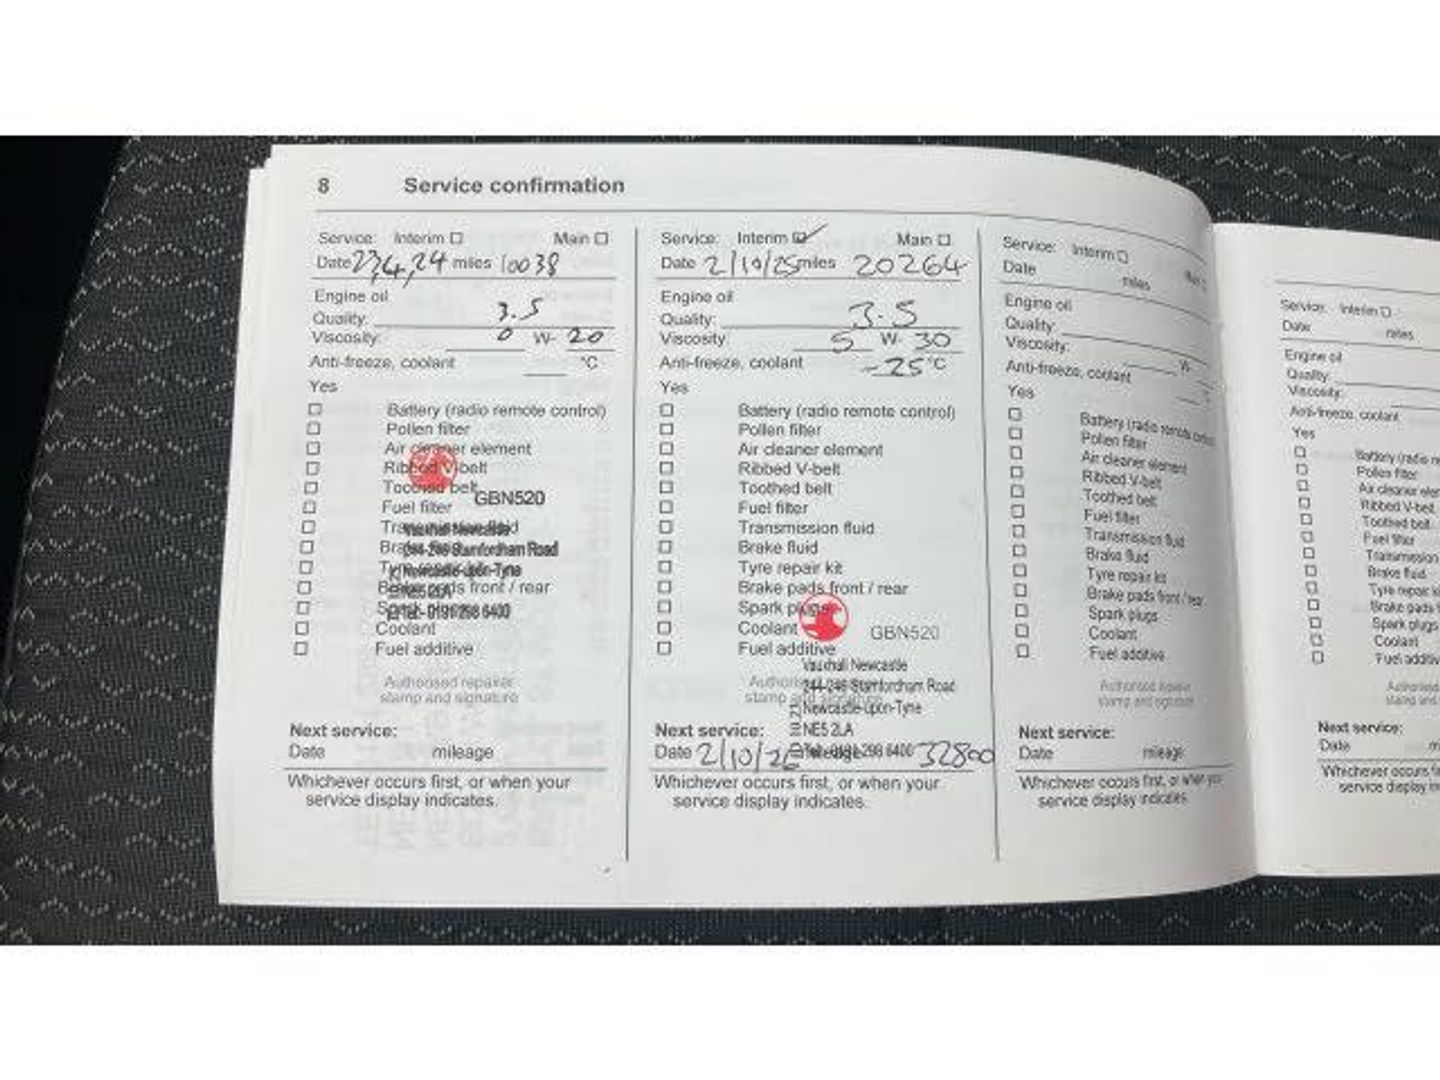 8 Service confirmation
Service: Interim ☐ Main ☐
Date 23,4,24 miles 10038
Engine oil
Quality: 3.5
Viscosity: 0 W- 20
Anti-freeze, coolant °C
Yes
☐ Battery (radio remote control)
☐ Pollen filter
☐ Air cleaner element
☐ Ribbed V-belt
☐ Toothed belt
GBN520
☐ Fuel filter
☐ Transmission fluid
Vauxhall Newcastle
☐ Brake fluid
244-246 Stamfordham Road
☐ Tyre repair kit
Newcastle-upon-Tyne
☐ Brake pads front / rear
NE5 2LA
☐ Spark plugs
Tel:- 0191 298 6400
☐ Coolant
☐ Fuel additive
Authorised repairer
stamp and signature
Next service:
Date mileage
Whichever occurs first, or when your
service display indicates.
Service: Interim ☑ Main ☐
Date 2/10/25 miles 20264
Engine oil
Quality: 3.5
Viscosity: 5 W- 30
Anti-freeze, coolant -25 °C
Yes
☐ Battery (radio remote control)
☐ Pollen filter
☐ Air cleaner element
☐ Ribbed V-belt
☐ Toothed belt
☐ Fuel filter
☐ Transmission fluid
☐ Brake fluid
☐ Tyre repair kit
☐ Brake pads front / rear
☐ Spark plugs
☐ Coolant
GBN520
☐ Fuel additive
Vauxhall Newcastle
244-246 Stamfordham Road
Authorised repairer
stamp and signature
Newcastle-upon-Tyne
NE5 2LA
Tel:- 0191 298 6400
Next service:
Date 2/10/26 mileage 32800
Whichever occurs first, or when your
service display indicates.
Service: Interim ☐ Main ☐
Date miles
Engine oil
Quality:
Viscosity: W-
Anti-freeze, coolant
Yes
☐ Battery (radio remote control)
☐ Pollen filter
☐ Air cleaner element
☐ Ribbed V-belt
☐ Toothed belt
☐ Fuel filter
☐ Transmission fluid
☐ Brake fluid
☐ Tyre repair kit
☐ Brake pads front / rear
☐ Spark plugs
☐ Coolant
☐ Fuel additive
Authorised repairer
stamp and signature
Next service:
Date mileage
Whichever occurs first, or when your
service display indicates.
Service: Interim ☐
Date miles
Engine oil
Quality:
Viscosity:
Anti-freeze, coolant
Yes
☐ Battery (radio
☐ Pollen filter
☐ Air cleaner
☐ Ribbed V-belt
☐ Toothed belt
☐ Fuel filter
☐ Transmission
☐ Brake fluid
☐ Tyre repair
☐ Brake pads
☐ Spark plugs
☐ Coolant
☐ Fuel
Authorised
stamp and
Next service:
Date
Whichever occurs
service display